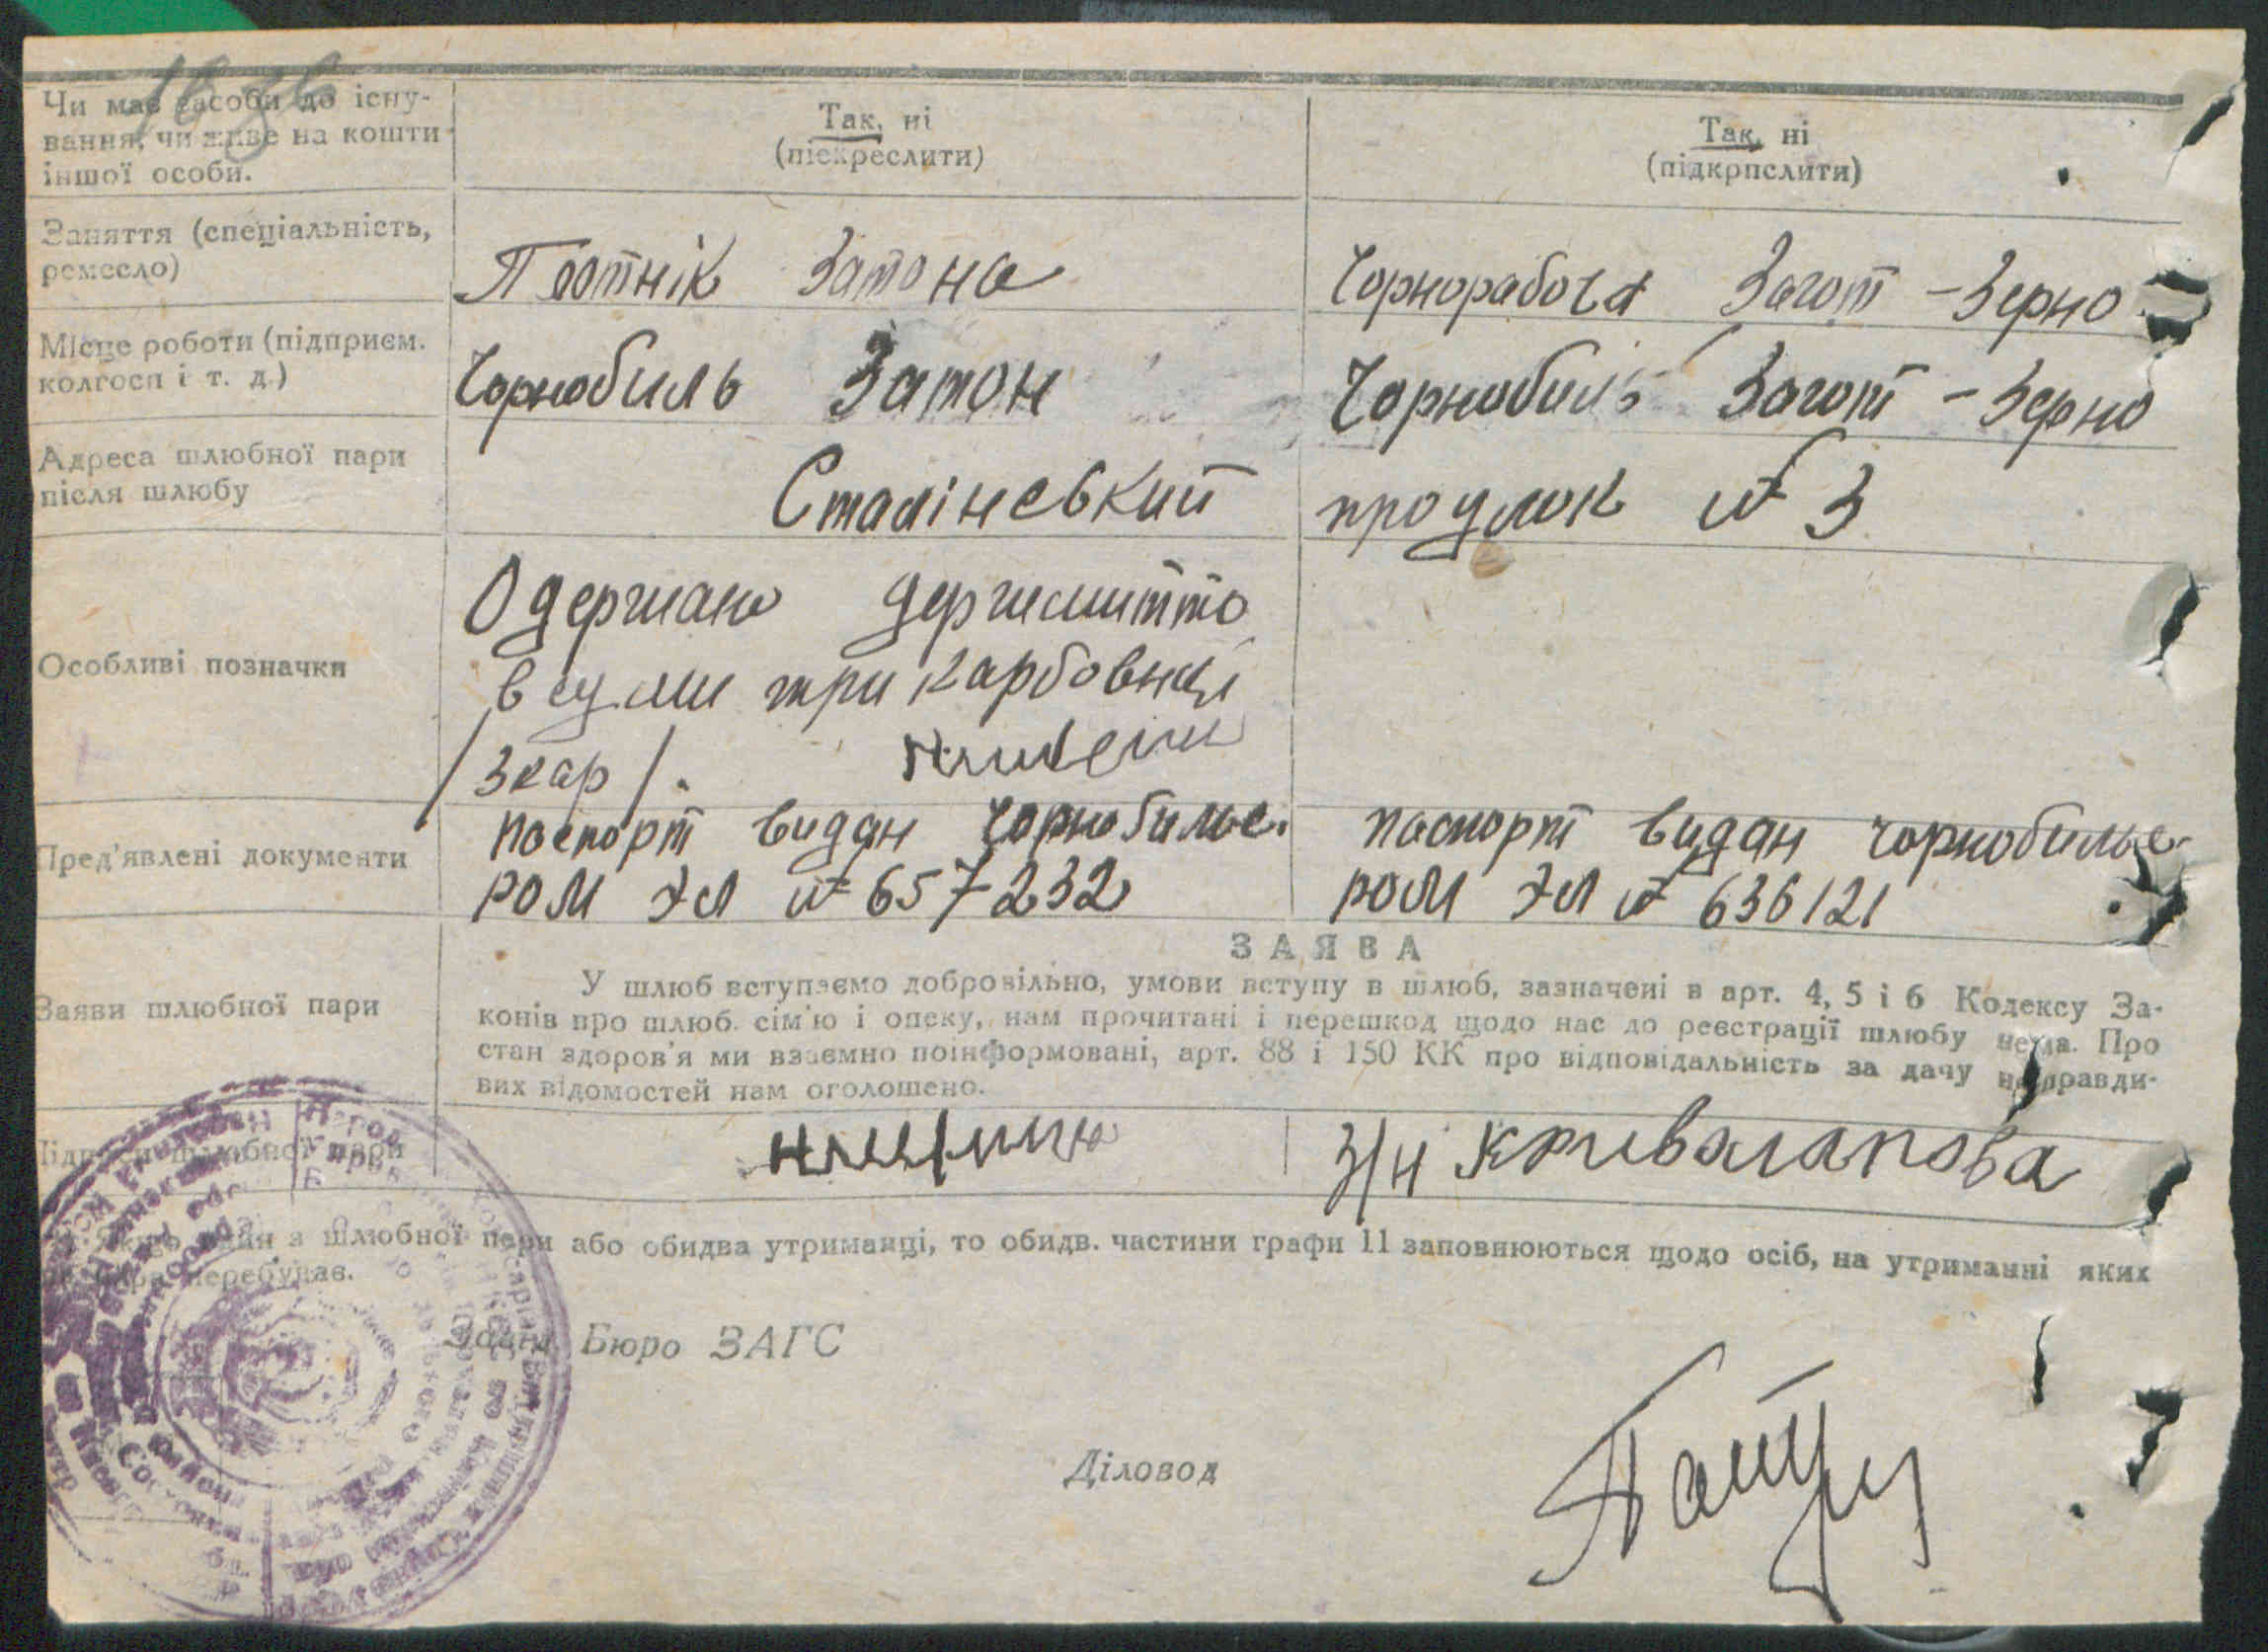 Чи має засоби до існу-
вання, чи живе на кошти
іншої особи.
Так, ні
(піскреслити)
Так, ні
(підкрпслити)
Заняття (спеціальність,
ремесло)
Плотнік Затона
Чорнорабоча Загот-Зерно
Місце роботи (підприєм.
колгосп і т. д.)
Чорнобиль Затон
Чорнобиль Загот-Зерно
Адреса шлюбної пари
після шлюбу
Сталінський проулок № 3
Особливі позначки
Одержано держмитто
в сумі три карбованці
/3 кар/.
Пред'явлені документи
паспорт видан Чорнобильс.
РОМ ЭЛ № 657232
паспорт видан Чорнобильс.
РОМ ЭЛ № 636121
Заяви шлюбної пари
ЗАЯВА
У шлюб вступаємо добровільно, умови вступу в шлюб, зазначені в арт. 4, 5 і 6 Кодексу За-
конів про шлюб, сім'ю і опеку, нам прочитані і перешкод щодо нас до реєстрації шлюбу нема. Про
стан здоров'я ми взаємно поінформовані, арт. 88 і 150 КК про відповідальність за дачу неправди-
вих відомостей нам оголошено.
Підписи шлюбної пари
З/Н Кривалапова
Якщо один з шлюбної пари або обидва утриманці, то обидв. частини графи 11 заповнюються щодо осіб, на утриманні яких
пара перебуває.
Бюро ЗАГС
Діловод